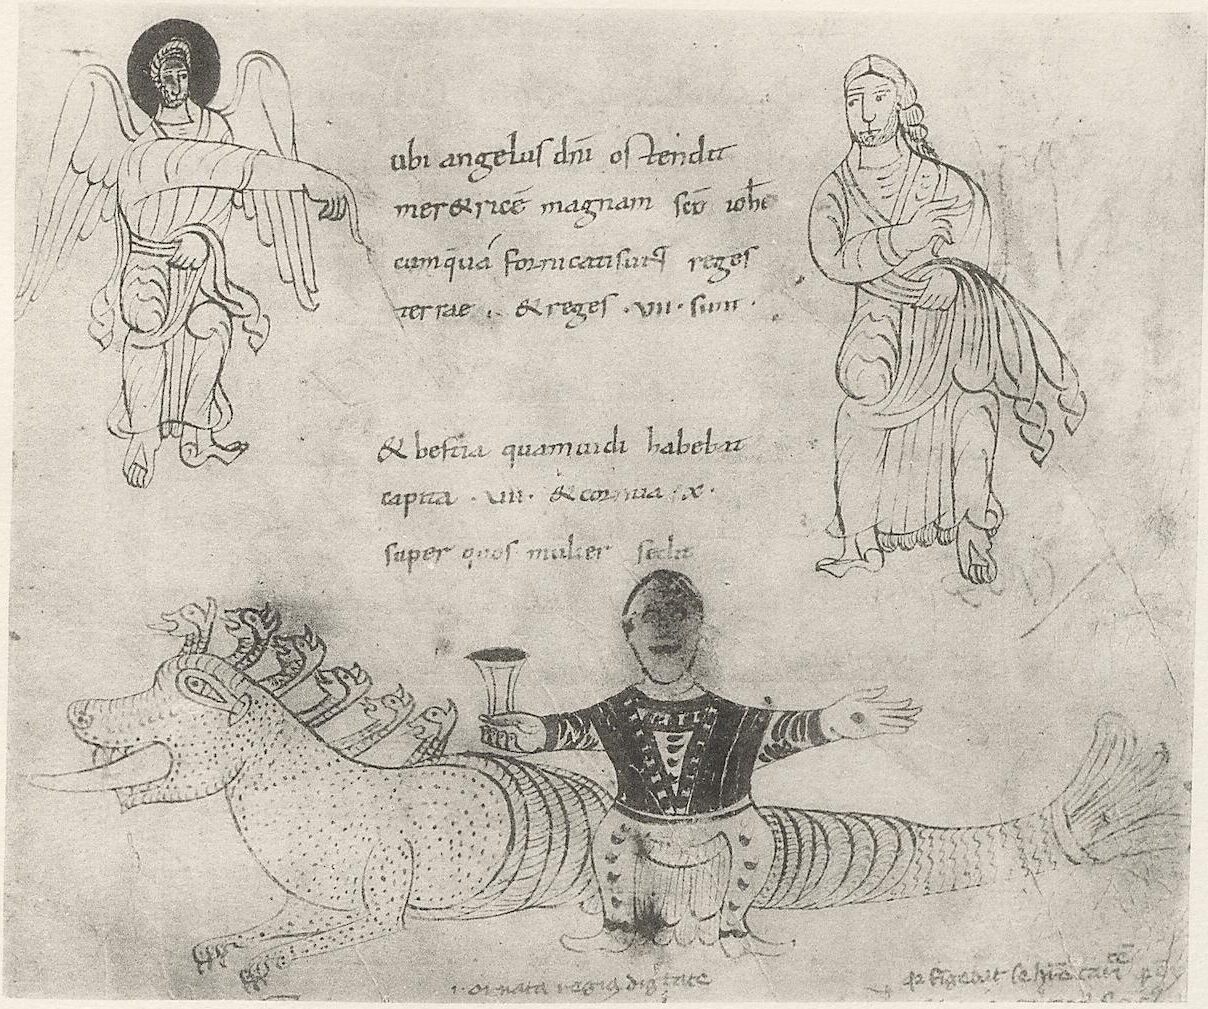 ubi angelus dn̄i ostendit
meretricē magnam sc̄o ioh̄e
cum qua fornicati sunt reges
terrae & reges · VII · sunt ·
& bestia quam uidi habebat
capita · VII · & cornua · X ·
super quos mulier sedit
ornata regia digitate
se